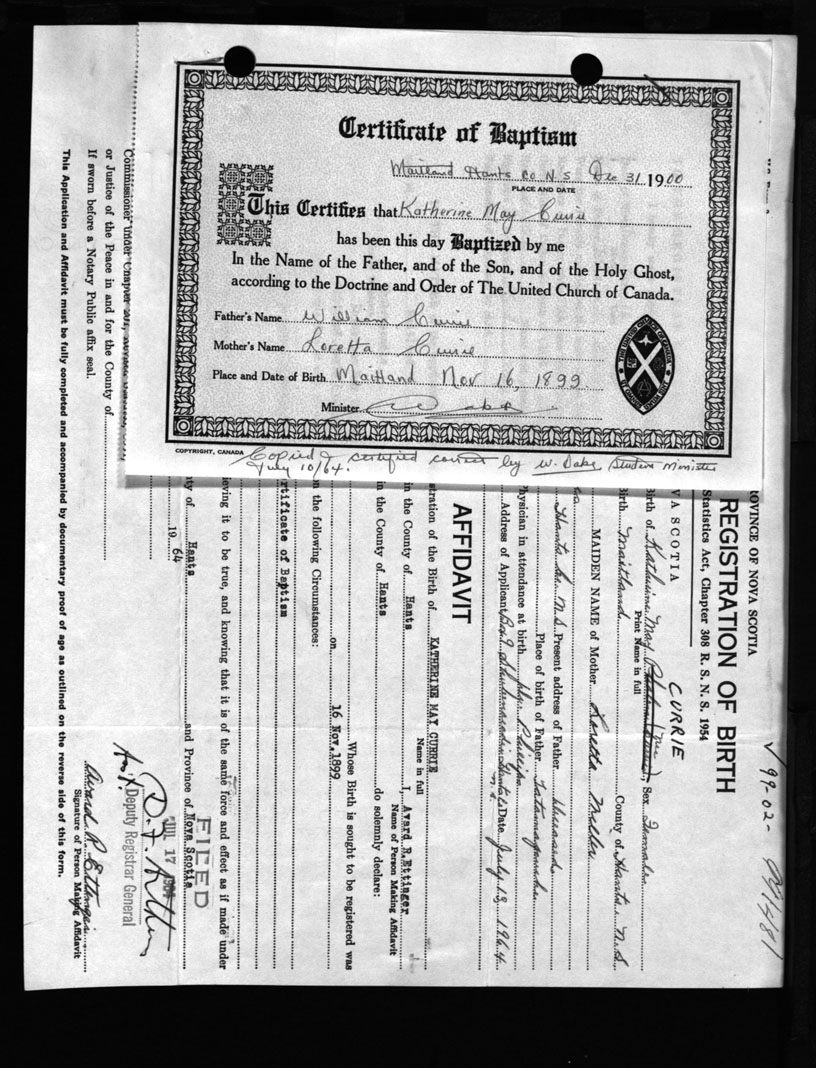 Certificate of Baptism
Maitland Hants Co. N.S. Dec 31 1900
PLACE AND DATE
This Certifies that Katherine May Currie
has been this day Baptized by me
In the Name of the Father, and of the Son, and of the Holy Ghost,
according to the Doctrine and Order of The United Church of Canada.
Father's Name William Currie
Mother's Name Loretta Currie
Place and Date of Birth Maitland Nov 16, 1899
Minister
COPYRIGHT, CANADA
Copied & certified correct by W. Dake Student Minister
July 10/64.
99-02-
OVINCE OF NOVA SCOTIA
REGISTRATION OF BIRTH
Statistics Act, Chapter 308 R. S. N. S. 1954
VA SCOTIA
CURRIE
Birth of Katherine May Sex Female
Print Name in full
Birth Maitland County of Hants, N.S.
MAIDEN NAME of Mother Loretta Miller
Hants Co. N.S. Present address of Father deceased
Place of birth of Father Tatamagouche
Physician in attendance at birth Phillips
Address of Applicant Date July 13, 1964
N.S.
AFFIDAVIT
stration of the Birth of KATHERINE MAY CURRIE I, Avard R. Ettinger
Name in full Name of Person Making Affidavit
in the County of Hants
in the County of Hants do solemnly declare:
on 16 Nov. 1899 Whose Birth is sought to be registered was
n the following Circumstances:
rtificate of Baptism
ieving it to be true, and knowing that it is of the same force and effect as if made under
ty of Hants and Province of Nova Scotia
19 64
FILED
JUL 17 1964
Deputy Registrar General
Avard R. Ettinger
Signature of Person Making Affidavit
Commissioner under Chapter
or Justice of the Peace in and for the County of
If sworn before a Notary Public affix seal.
This Application and Affidavit must be fully completed and accompanied by documentary proof of age as outlined on the reverse side of this form.